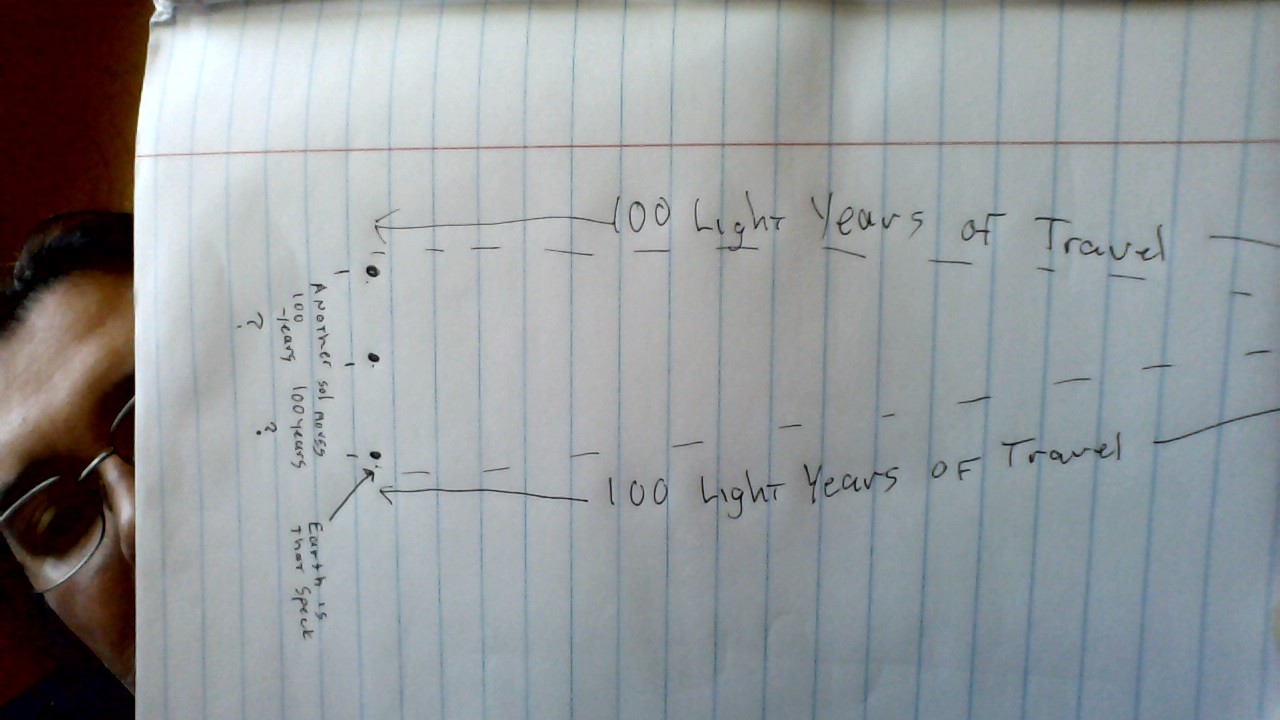 100 Light Years of Travel
100 Light Years OF Travel
Another sol moves
100 years 100 years
? ?
Earth is
That Speck